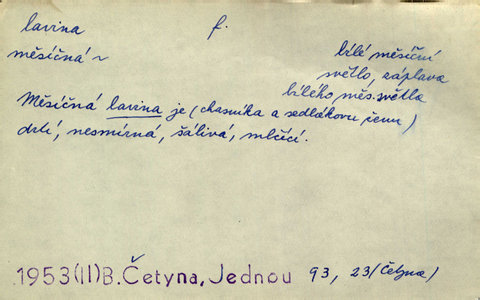 lavina f.
měsíčná ~
bílé měsíční
světlo, záplava
bílého měs. světla
Měsíčná lavina je (chasníka a sedlákovu ženu)
drtí, nesmírná, šálivá, mlčící.
1953(II)B. Četyna, Jednou 93, 23 (Četyna)